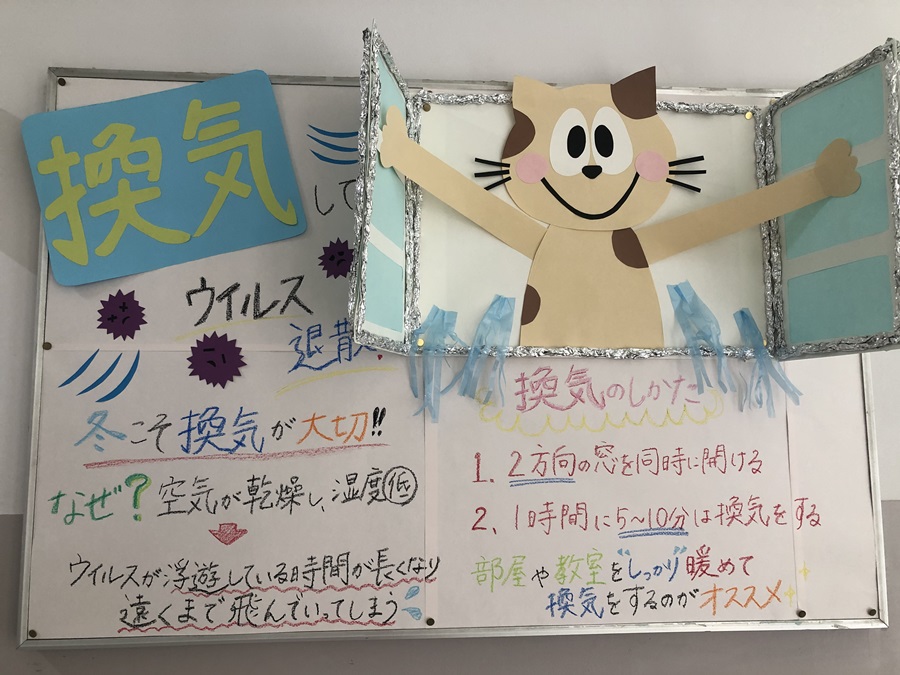 換気
して
ウイルス
退散!
冬こそ換気が大切!!
なぜ?空気が乾燥し、湿度低
ウイルスが浮遊している時間が長くなり
遠くまで飛んでいってしまう
換気のしかた
1. 2方向の窓を同時に開ける
2、1時間に5~10分は換気をする
部屋や教室を"しっかり"暖めて
換気をするのがオススメ